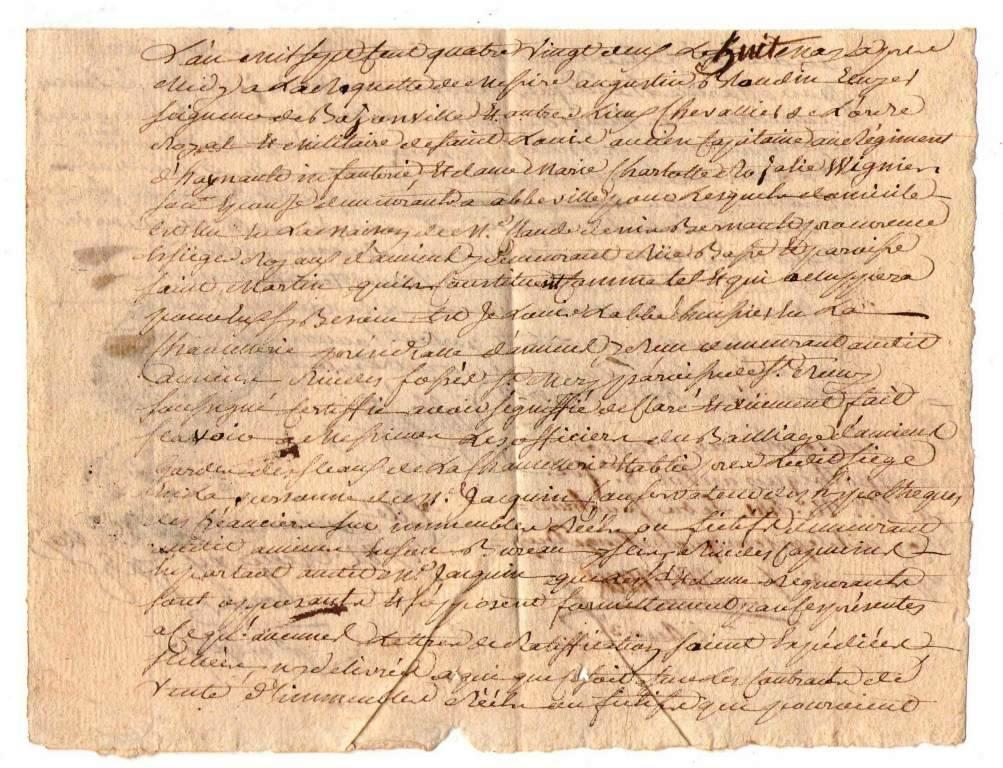 L'an mil sept cent quatre vingt deux Le huit may apres
Midy a La Requette de Messire augustin Blondin Ecuyer
seigneur de Bazonville & autres Lieux Chevallier de L'ordre
Royal & Militaire de saint Louis ancien Capitaine au Régiment
d'haynault infanterie & dame Marie Charlotte Rosalie Wignier
son Epouse demeurants a abbeville pour lesquels domicile
est élu en La maison de Me. Claude denis procureur
es sièges Royaux d'amiens y demeurant Rüe Basse & paroisse
saint Martin qu'ils Constituent Comme tel & qui occuppera
pour Eux sy Besoin est Je huissier En La
Chancellerie présidialle d'amiens y demeurant audit
amiens Rüe des fossés St. Mery paroisse de St. Remy
soussigné Certiffie avoir signiffié declaré & duement fait
scavoir a Messieurs Les officiers du Bailliage d'amiens
gardes des sceaux de La Chancellerie Etablie près Ledit siège
En La personne de Me. Jacquin Conservateur des hypotheques
des Créanciers sur immeubles Réels ou fictifs demeurant
audit amiens En son Bureau y scis Rüe des Capucins
En parlant audit Me. Jacquin que les Sr. & dame Requerants
sont opposants & s'opposent formellement par ces présentes
a ce qu'aucunes Lettres de Ratiffication soient Expédiées
scellées ny delivrées a qui que ce soit sur les Contrats de
vente d'immeubles Réels ou fictifs que pouroient